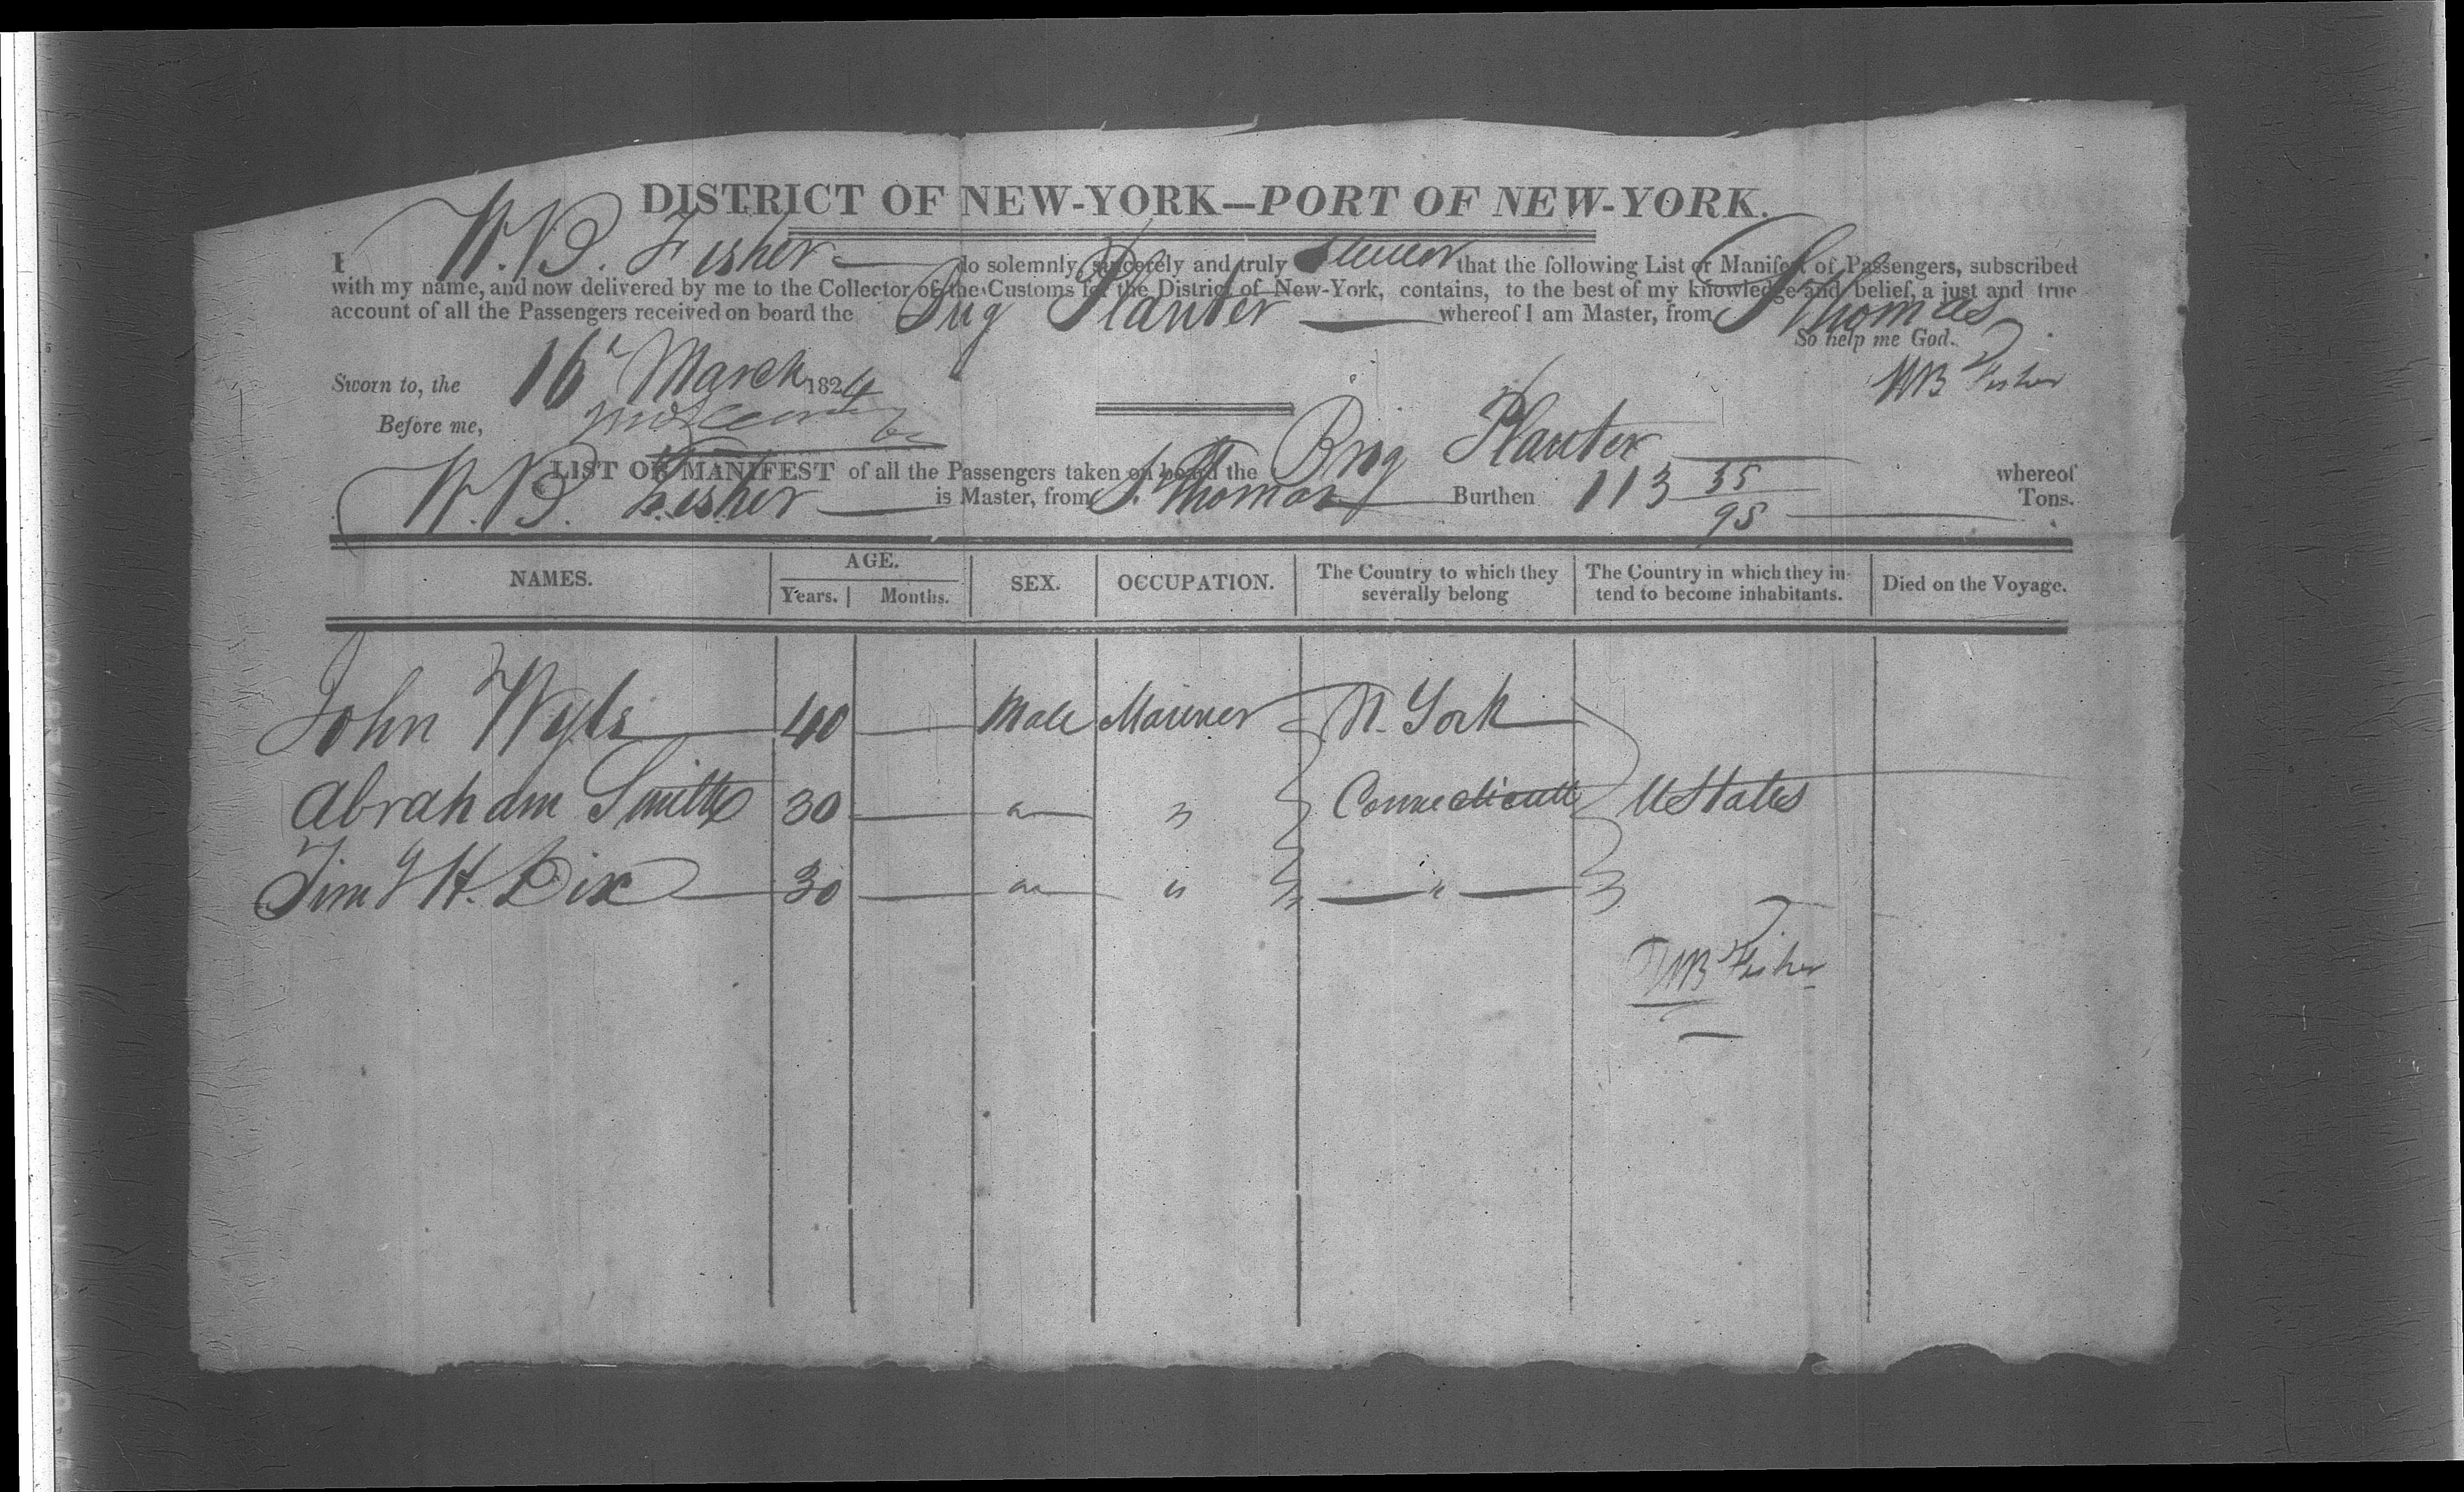 DISTRICT OF NEW-YORK—PORT OF NEW-YORK.
I W. B. Fisher do solemnly, sincerely and truly swear that the following List or Manifest of Passengers, subscribed
with my name, and now delivered by me to the Collector of the Customs for the District of New-York, contains, to the best of my knowledge and belief, a just and true
account of all the Passengers received on board the Brig Planter whereof I am Master, from St Thomas
So help me God.
Sworn to, the 16th March 1824 WB Fisher
Before me,
LIST OR MANIFEST of all the Passengers taken on board the Brig Planter whereof
W. B. Fisher is Master, from St Thomas Burthen 113 35/95 Tons.
NAMES. AGE. SEX. OCCUPATION. The Country to which they severally belong The Country in which they intend to become inhabitants. Died on the Voyage.
Years. Months.
John Wyls 40 — Male Mariner N. York
Abraham Smith 30 — " " Connecticutt UStates
Timy H. Dix 30 — " " — " —
WB Fisher